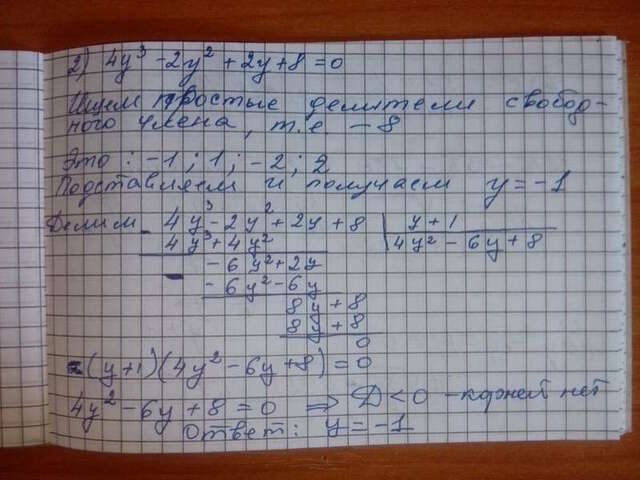 2) 4y³ - 2y² + 2y + 8 = 0
Ищем простые делители свобод-
ного члена, т.е - 8
Это : -1 ; 1 ; -2 ; 2
Подставляем и получаем y = -1
Делим - 4y³ - 2y² + 2y + 8 | y + 1
4y³ + 4y² | 4y² - 6y + 8
- - 6y² + 2y
- 6y² - 6y
8y + 8
8y + 8
0
(y+1)(4y² - 6y + 8) = 0
4y² - 6y + 8 = 0 ⇒ D < 0 - корней нет
Ответ: y = -1